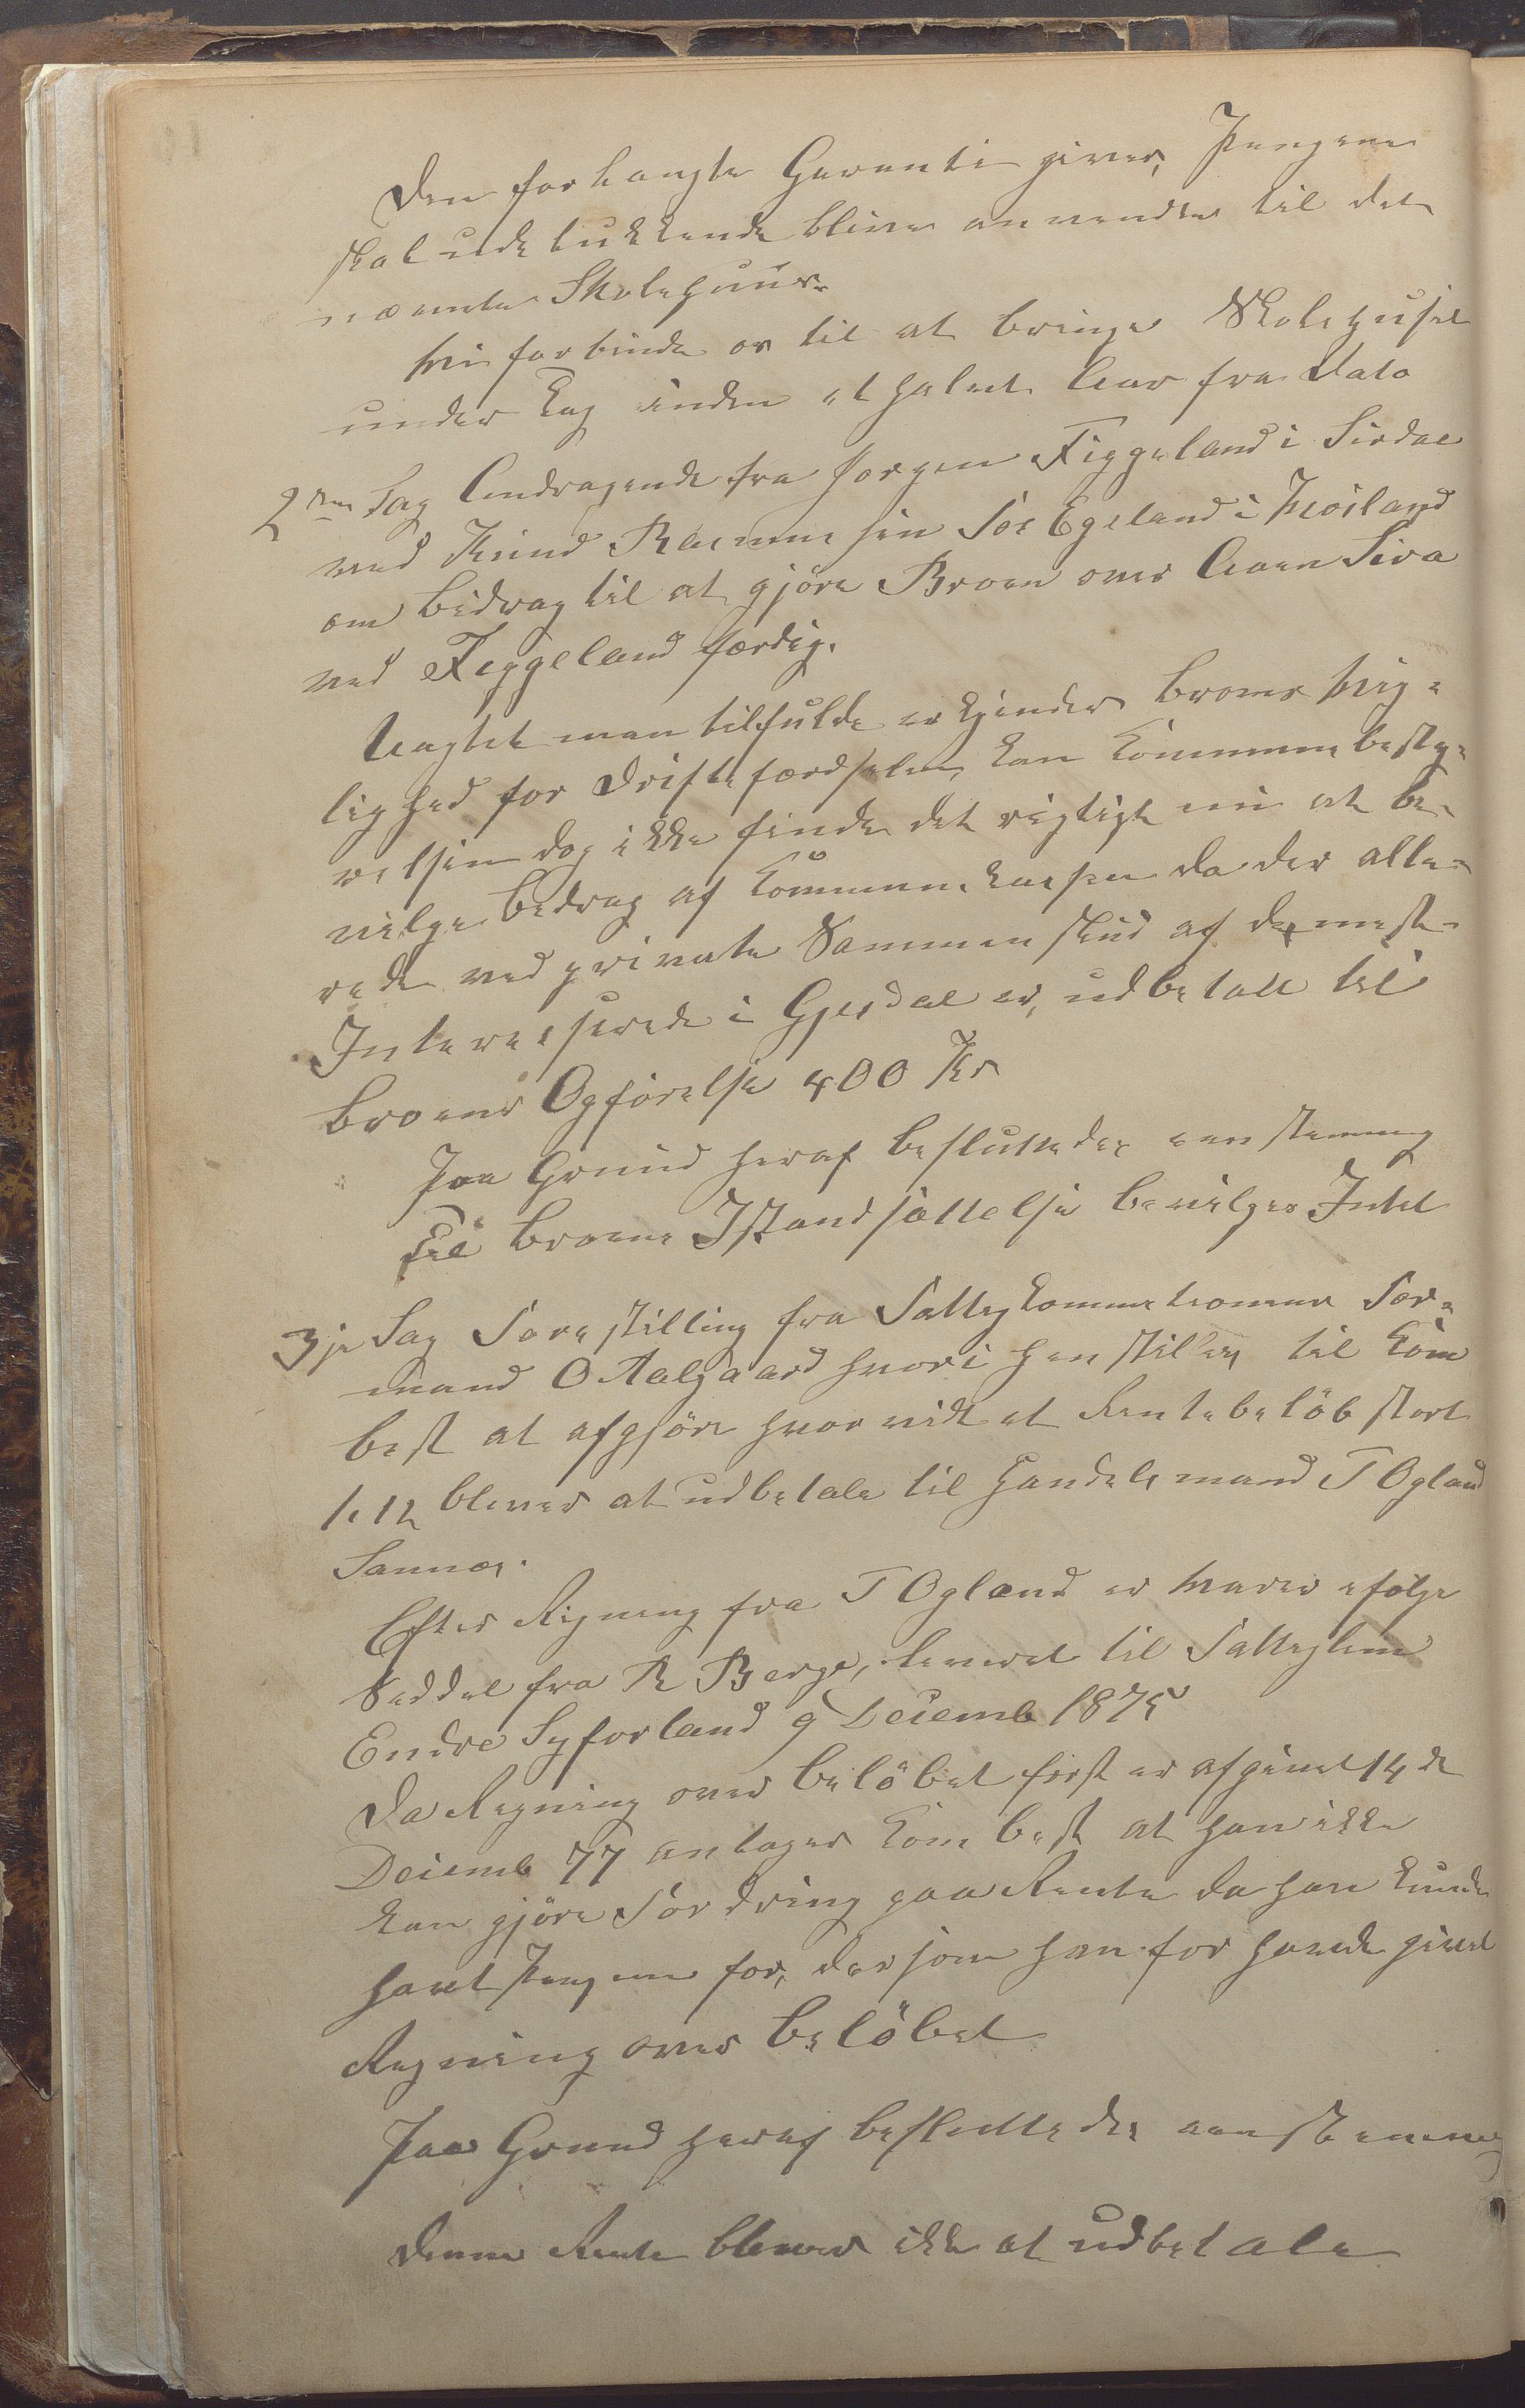 Den forlangte Garanti gives, Pengene
skal udelukkende blive anvendte til det
nævnte Skolehuus.
Vi forbinde os til at bringe Skolehuset
under Tag inden et halvt Aar fra Dato
2den Sag Andragende fra Jørgen Figgeland i Sirdal
med Knud Rasmussen Sør Egeland i Høiland
om Bidrag til at gjöre Broen over Aaen Sira
ved Feggeland færdig.
Uagtet man tilfulde erkjender Broens Vig-
tighed for Driftefærdselen, kan Kommunebesty-
relsen dog ikke finde det rigtigt nu at be-
vilge Bidrag af Kommunekassen da der alle-
rede ved private Sammenskud af de meste
Interesserede i Gjesdal er udbetalt til
Broens Opførelse 400 Kr
Paa Grund heraf besluttedes eenstemmig
Til Broens Istandsættelse bevilges Intet
3je Sag Forestilling fra Fattigkommisionens For-
mand O Aalgaard hvori henstilles til Kom
best at afgjöre hvorvidt et Rentebeløb stort
1.12 bliver at udbetale til Handelsmand T Ogland
Sannæs.
Efter Regning fra T Ogland er Varer ifølge
Seddel fra R Berge, leveret til Fattiglem
Endre Lyforland 9 Decemb 1875
Da Regning over Beløbet først er afgivet 14de
Decemb 77 antager Kom best at han ikke
kan gjöre Fordring paa Rente da han kunde
havt Pengene för, dersom han för havde givet
Regning over Belöbet
Paa Grund heraf besluttedes eenstemmig
Denne Rente bliver ikke at udbetale